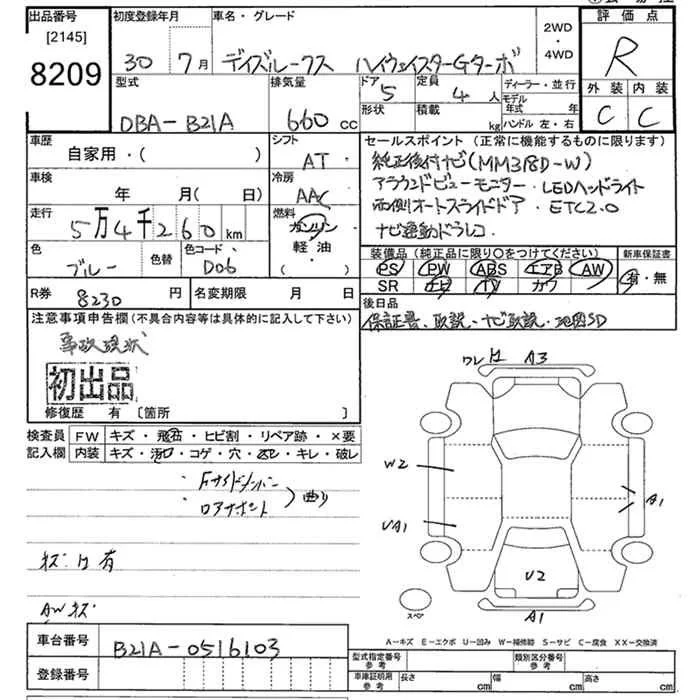 出品番号
[2145]
8209
初度登録年月
30 7月
車名・グレード
デイズルークス ハイウェイスターGターボ
2WD
・
4WD
評価点
R
外装 内装
C C
型式
DBA-B21A
排気量
660 cc
ドア
5
定員
4 人
形状
積載
kg
ディーラー・並行
モデル
年式 年
ハンドル 左・右
車歴
自家用・( )
シフト
AT
車検
年 月( 日)
冷房
AAC
走行
5万4千260 km
燃料
ガソリン
軽油
( )
色
ブルー
色替
色コード
D06
R券 8230 円
名変期限 月 日
セールスポイント(正常に機能するものに限ります)
純正後付ナビ(MM318D-W)
アラウンドビューモニター・LEDヘッドライト
両側オートスライドドア. ETC2.0
ナビ連動ドラレコ.
装備品(純正品に限り〇をつけてください)
PS PW ABS エアB AW
SR ナビ TV カワ
新車保証書
有・無
後日品
保証書、取説、ナビ取説・地図SD
注意事項申告欄(不具合内容等は具体的に記入して下さい)
事故現状
初出品
修復歴 有 [箇所 ]
検査員
記入欄
FW キズ・飛石・ヒビ割・リペア跡・×要
内装 キズ・汚れ・コゲ・穴・スレ・キレ・破レ
・Fサイドメンバー
・ロアサポート
曲り
キズ・凹有
AWキズ
ワレ A3
W2
UA1
A1
U2
A1
スペア
A-キズ E-エクボ U-凹み W-補修跡 S-サビ C-腐食 XX-交換済
車台番号
B21A-0516103
登録番号
型式指定番号
参考
類別区分番号
参考
車庫証明用
参考
長さ cm
幅 cm
高さ cm